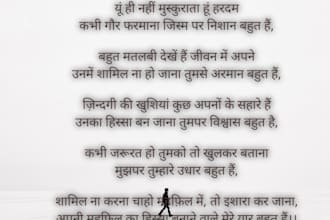 यूं ही नहीं मुस्कुराता हूं हरदम
कभी गौर फरमाना जिस्म पर निशान बहुत हैं,
बहुत मतलबी देखें हैं जीवन में अपने
उनमें शामिल ना हो जाना तुमसे अरमान बहुत हैं,
ज़िन्दगी की खुशियां कुछ अपनों के सहारे हैं
उनका हिस्सा बन जाना तुमपर विश्वास बहुत है,
कभी जरूरत हो तुमको तो खुलकर बताना
मुझपर तुम्हारे उधार बहुत हैं,
शामिल ना करना चाहो महफ़िल में, तो इशारा कर जाना,
अपनी महफिल का हिस्सा बनाने वाले मेरे यार बहुत हैं।।